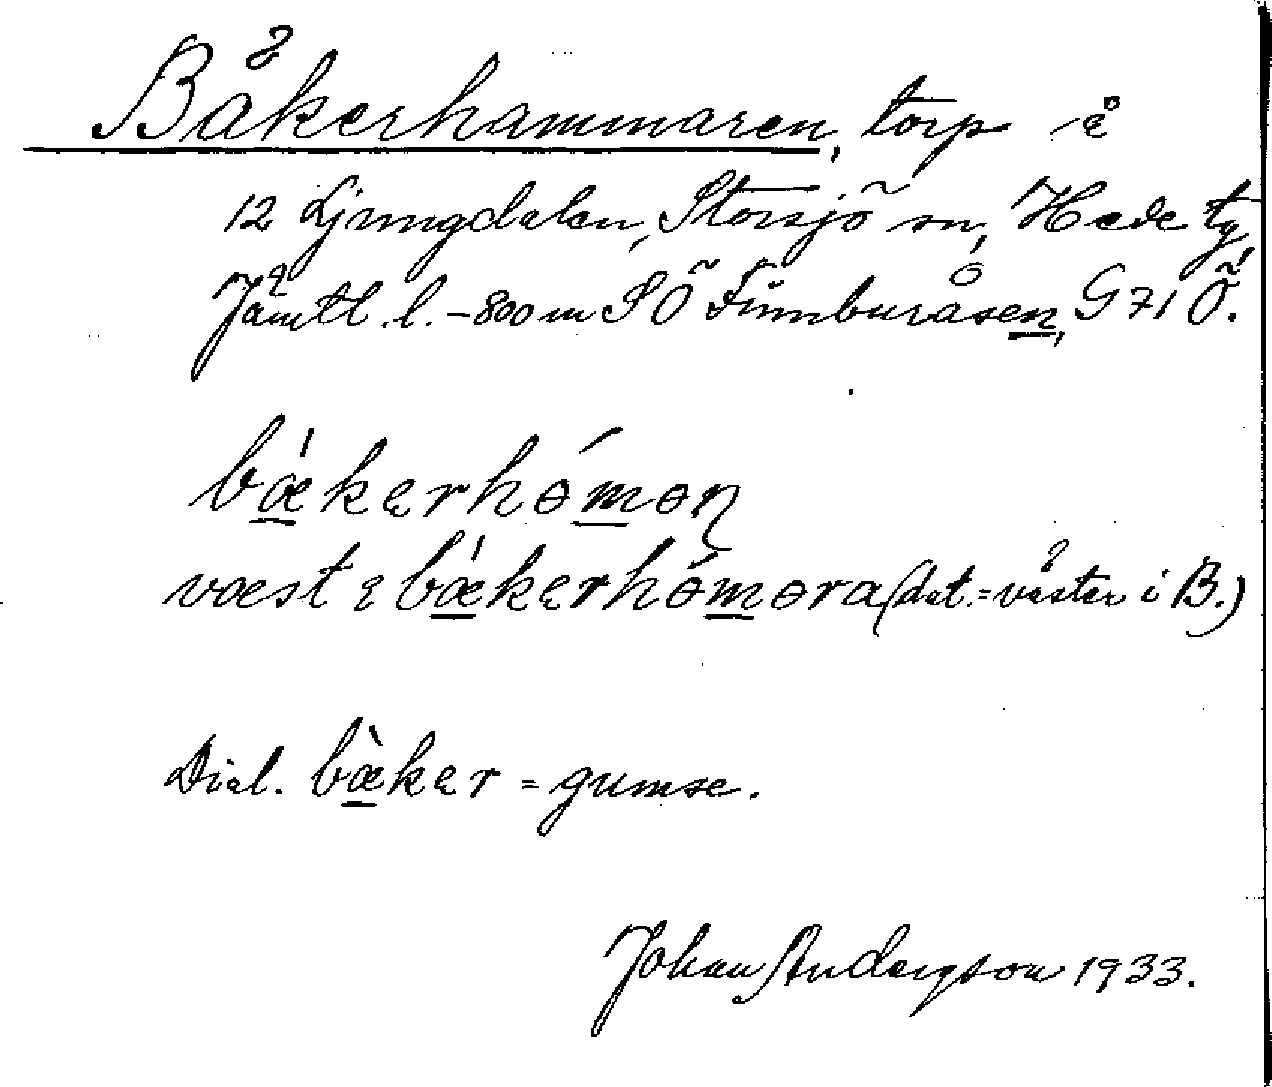 Bäkerhammaren, torp å
12 Ljungdalen, Storsjö sn, Hede tg,
Jämtl. l. – 800 m SÖ Finnburåsen, G 71 Ö.
bǽkęrhómoņ
væst ę bǽkęrhómora (dat. = väster i B.)
Dial. bæ̀kęr = gumse.
Johan Anderson 1933.